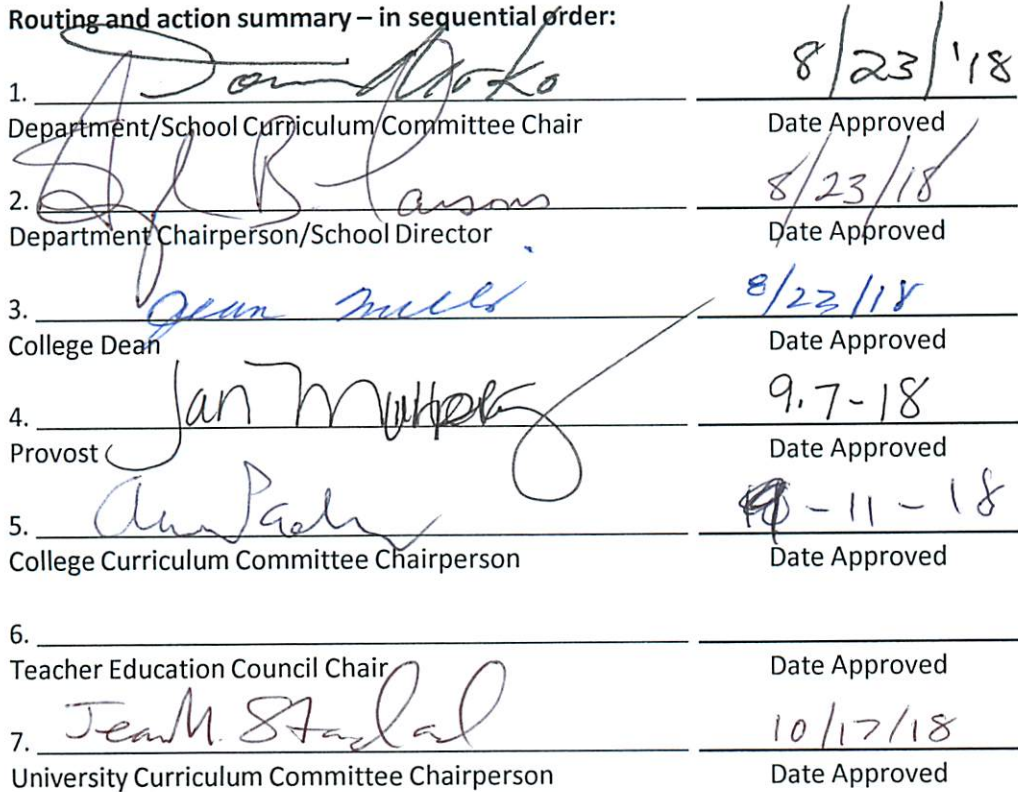 Routing and action summary – in sequential order:
1. 8/23/'18
Department/School Curriculum Committee Chair Date Approved
2. B Parsons 8/23/18
Department Chairperson/School Director Date Approved
3. Jean Mills 8/23/18
College Dean Date Approved
4. Jan Murphy 9.7-18
Provost Date Approved
5. -11-18
College Curriculum Committee Chairperson Date Approved
6.
Teacher Education Council Chair Date Approved
7. Jean M. 10/17/18
University Curriculum Committee Chairperson Date Approved